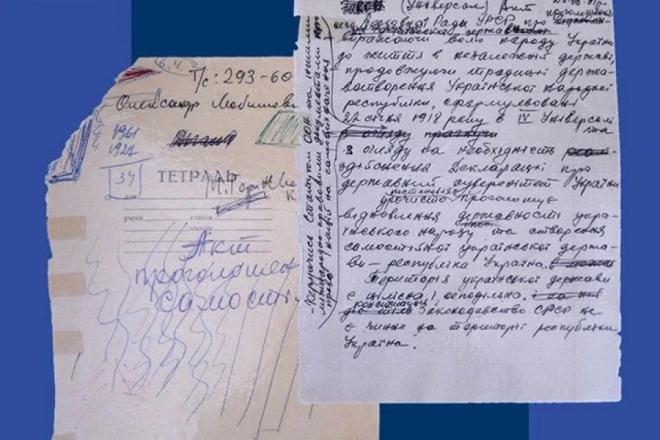 Т/с: 293-60
Олександр
1961
1921
34
ТЕТРАДЬ
Акт
проголошен
самості
(Універсал) Акт проголошення
Верховної Ради УРСР про
волю народу України
до життя в незалежній державі,
продовжуючи традиції держа-
вотворення Української народної
республіки, сформульовані
22 січня 1918 року в IV Універсалі
та
з огляду на необхідність
здійснення Декларації про
державний суверенітет України
урочисто проголошує
відновлення державності укра-
їнського народу та створення
самостійної української держа-
ви – республіка Україна.
Територія української держави
є цілісна і неподільна.
законодавство СРСР не
є чинне на території республіки
Україна.